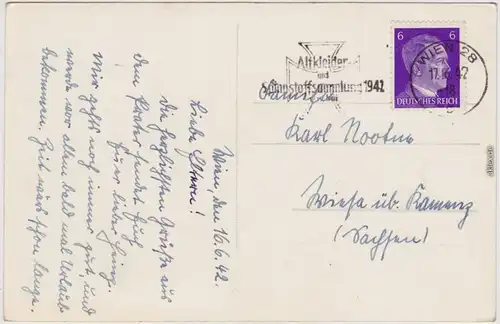 Wien, den 16.6.42.
Liebe Eltern!
Die herzlichsten Grüße aus
dem Prater sendet Euch
Euer lieber Heinz.
Mir geht's noch immer gut, und
werde vor allem bald mal Urlaub
bekommen. Zeit wär's schon lange.
Altkleider
und
Spinnstoffsammlung 1942
WIEN 28
17. 42
6 6
DEUTSCHES REICH
Familie
Karl
Wiesa üb. Kamenz
(Sachsen)